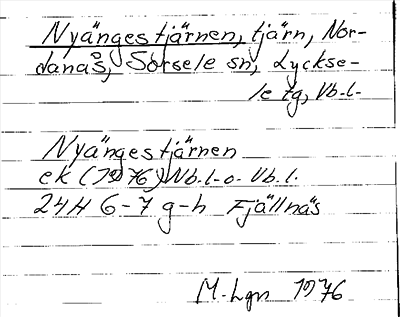 Nyängestjärnen, tjärn, Nor-
danås, Sorsele sn, Lyckse-
le tg, Vb.l.
Nyängestjärnen
ek (1976) Nb.l.o. Vb.l.
24H 6-7 g-h Fjällnäs
M.Lgn 1976